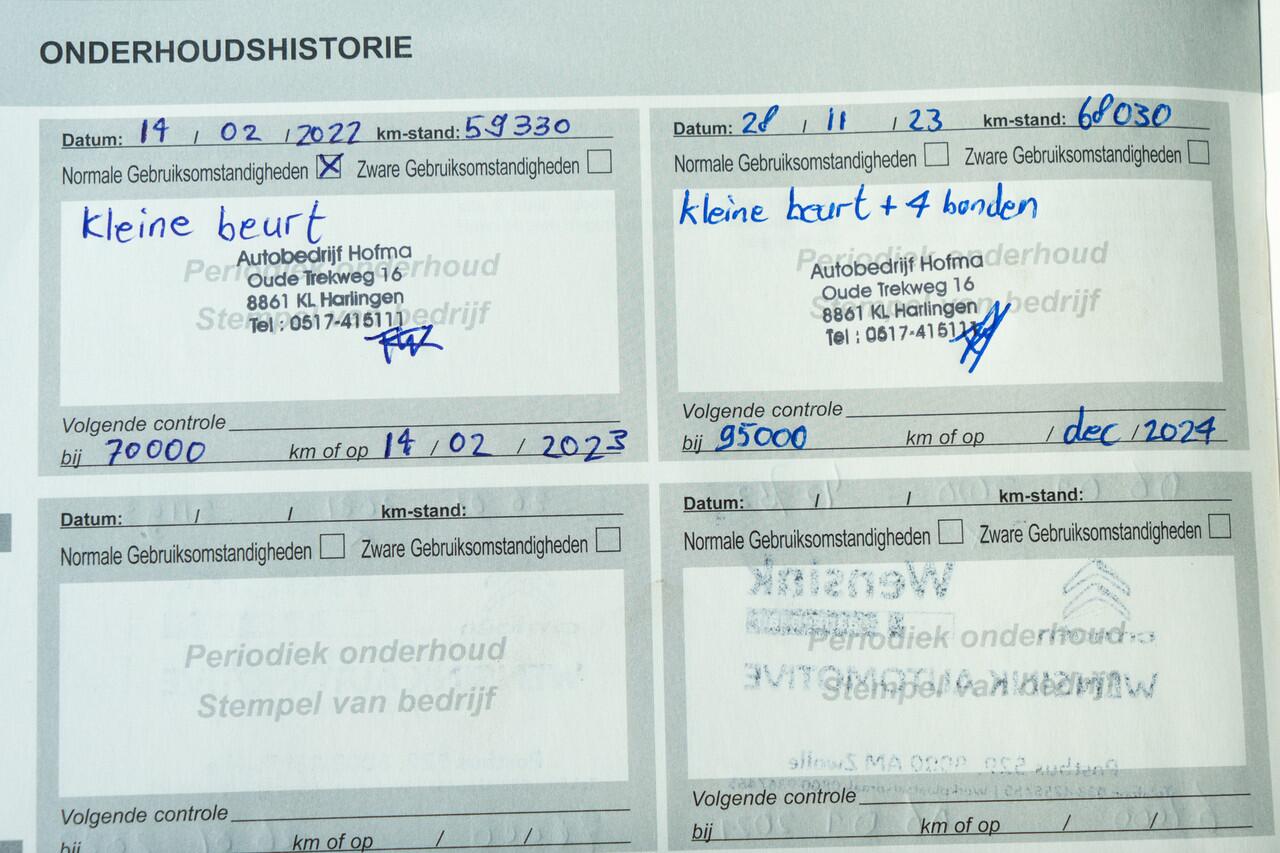 ONDERHOUDSHISTORIE
Datum: 14 / 02 / 2022 km-stand: 59330
Normale Gebruiksomstandigheden ☒ Zware Gebruiksomstandigheden ☐
Kleine beurt
Periodiek onderhoud
Stempel van bedrijf
Autobedrijf Hofma
Oude Trekweg 16
8861 KL Harlingen
Tel : 0517-415111
Volgende controle
bij 70000 km of op 14 / 02 / 2023
Datum: 28 / 11 / 23 km-stand: 68030
Normale Gebruiksomstandigheden ☐ Zware Gebruiksomstandigheden ☐
kleine beurt + 4 banden
Periodiek onderhoud
Stempel van bedrijf
Autobedrijf Hofma
Oude Trekweg 16
8861 KL Harlingen
Tel : 0517-415111
Volgende controle
bij 95000 km of op / dec / 2024
Datum: / / km-stand:
Normale Gebruiksomstandigheden ☐ Zware Gebruiksomstandigheden ☐
Periodiek onderhoud
Stempel van bedrijf
Volgende controle
bij km of op / /
Datum: / / km-stand:
Normale Gebruiksomstandigheden ☐ Zware Gebruiksomstandigheden ☐
Wensink
Periodiek onderhoud
Stempel van bedrijf
WENSINK AUTOMOTIVE
Postbus 529, 8000 AM Zwolle
Volgende controle
bij km of op / /